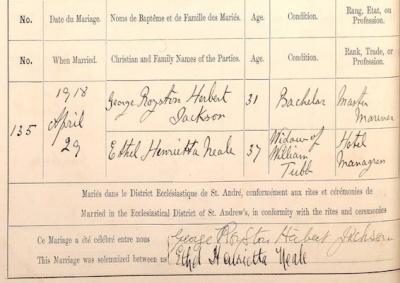 No. Date du Mariage. Noms de Baptême et de Famille des Mariés. Age. Condition. Rang, Etat, ou Profession.
No. When Married. Christian and Family Names of the Parties. Age. Condition. Rank, Trade, or Profession.
1918 George Royston Herbert Jackson 31 Bachelor Master Mariner
135 April
29 Ethel Henrietta Neale 37 Widow of William Tubb Hotel Manageress
Mariés dans le District Ecclésiastique de St. André, conformément aux rites et cérémonies
Married in the Ecclesiastical District of St. Andrew's, in conformity with the rites and ceremonies
Ce Mariage a été célébré entre nous George Royston Herbert Jackson
This Marriage was solemnized between us Ethel Henrietta Neale